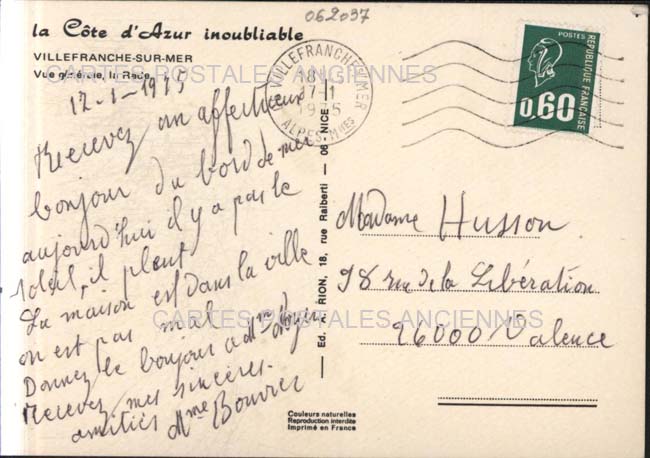 062037
la Côte d'Azur inoubliable
VILLEFRANCHE-SUR-MER
Vue générale, la Rade
CARTES POSTALES ANCIENNES
12-1-1975
Recevez un affectueux
bonjour du bord de mer
aujourd'hui il y a pas le
soleil, il pleut
La maison est dans la ville
on est pas mal
Donnez le bonjour a dme
Recevez mes sincères
amitiés Mme Bouvier
VILLEFRANCHE S MER
18H
17-1
1975
ALPES-Mmes
POSTES
REPUBLIQUE FRANÇAISE
0,60
Ed. A. RION, 18, rue Raiberti — 06 NICE
Madame Husson
98 rue de la Libération
26000 Valence
CARTES POSTALES ANCIENNES
Couleurs naturelles
Reproduction interdite
Imprimé en France